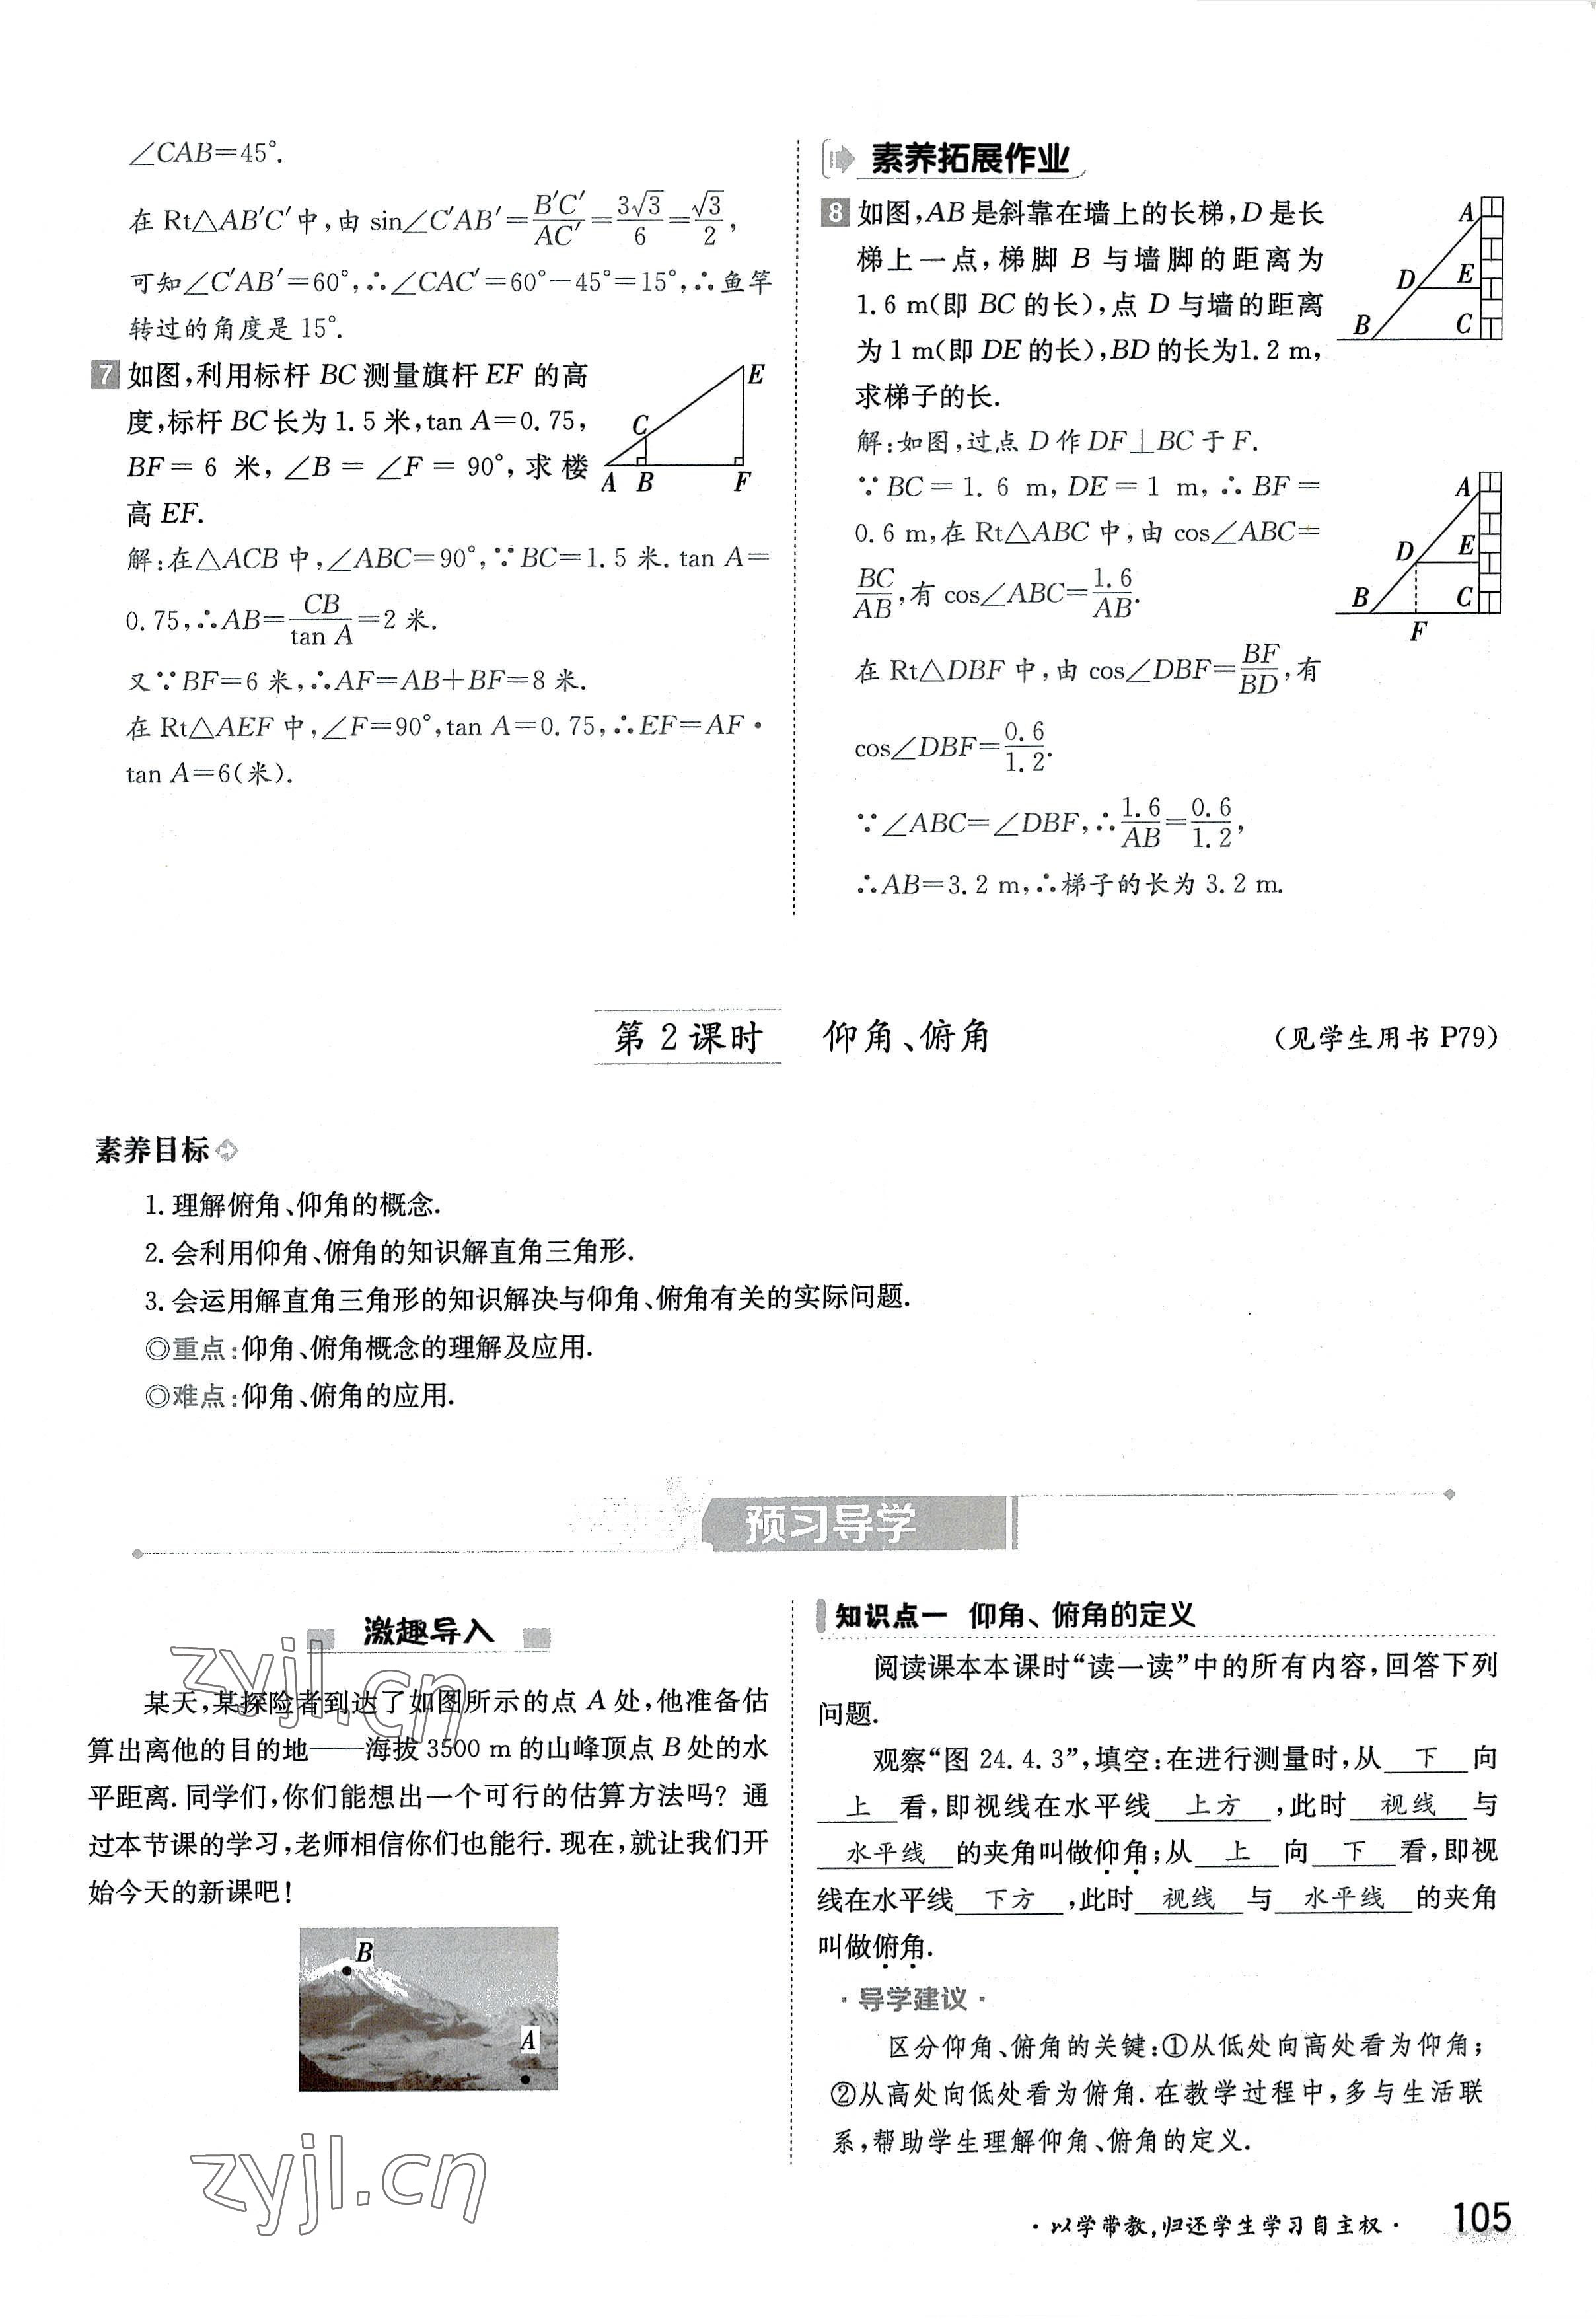 ∠CAB=45°.
在 Rt△AB′C′中,由 sin∠C′AB′=B′C′/AC′=3√3/6=√3/2,
可知∠C′AB′=60°,∴∠CAC′=60°-45°=15°,∴鱼竿
转过的角度是 15°.
7 如图,利用标杆 BC 测量旗杆 EF 的高
度,标杆 BC 长为 1.5 米,tan A=0.75,
BF= 6 米, ∠B = ∠F = 90°, 求 楼
高 EF.
E
C
A B F
解:在△ACB 中,∠ABC=90°,∵BC=1.5 米. tan A=
0.75,∴AB=CB/tan A=2 米.
又∵BF=6 米,∴AF=AB+BF=8 米.
在 Rt△AEF 中,∠F=90°,tan A=0.75,∴EF=AF·
tan A=6(米).
素养拓展作业
8 如图,AB 是斜靠在墙上的长梯,D 是长
梯上一点,梯脚 B 与墙脚的距离为
1.6 m(即 BC 的长),点 D 与墙的距离
为 1 m(即 DE 的长),BD 的长为1.2 m,
求梯子的长.
A
D E
B C
解:如图,过点 D 作 DF⊥BC 于 F.
∵BC= 1.6 m, DE= 1 m,∴BF=
0.6 m,在 Rt△ABC 中,由 cos∠ABC=
BC/AB,有 cos∠ABC=1.6/AB.
在 Rt△DBF 中,由 cos∠DBF=BF/BD,有
cos∠DBF=0.6/1.2.
∵∠ABC=∠DBF,∴1.6/AB=0.6/1.2,
∴AB=3.2 m,∴梯子的长为 3.2 m.
A
D E
B C
F
第 2 课时 仰角、俯角 (见学生用书 P79)
素养目标
1. 理解俯角、仰角的概念.
2. 会利用仰角、俯角的知识解直角三角形.
3. 会运用解直角三角形的知识解决与仰角、俯角有关的实际问题.
◎重点:仰角、俯角概念的理解及应用.
◎难点:仰角、俯角的应用.
预习导学
激趣导入
某天,某探险者到达了如图所示的点 A 处,他准备估
算出离他的目的地——海拔 3500 m 的山峰顶点 B 处的水
平距离. 同学们,你们能想出一个可行的估算方法吗? 通
过本节课的学习,老师相信你们也能行. 现在,就让我们开
始今天的新课吧!
B
A
知识点一 仰角、俯角的定义
阅读课本本课时“读一读”中的所有内容,回答下列
问题.
观察“图 24.4.3”,填空:在进行测量时,从 下 向
上 看,即视线在水平线 上方 ,此时 视线 与
水平线 的夹角叫做仰角;从 上 向 下 看,即视
线在水平线 下方 ,此时 视线 与 水平线 的夹角
叫做俯角.
· 导学建议 ·
区分仰角、俯角的关键:①从低处向高处看为仰角;
②从高处向低处看为俯角. 在教学过程中,多与生活联
系,帮助学生理解仰角、俯角的定义.
zyjl.cn
zyjl.cn
· 以学带教,归还学生学习自主权 · 105